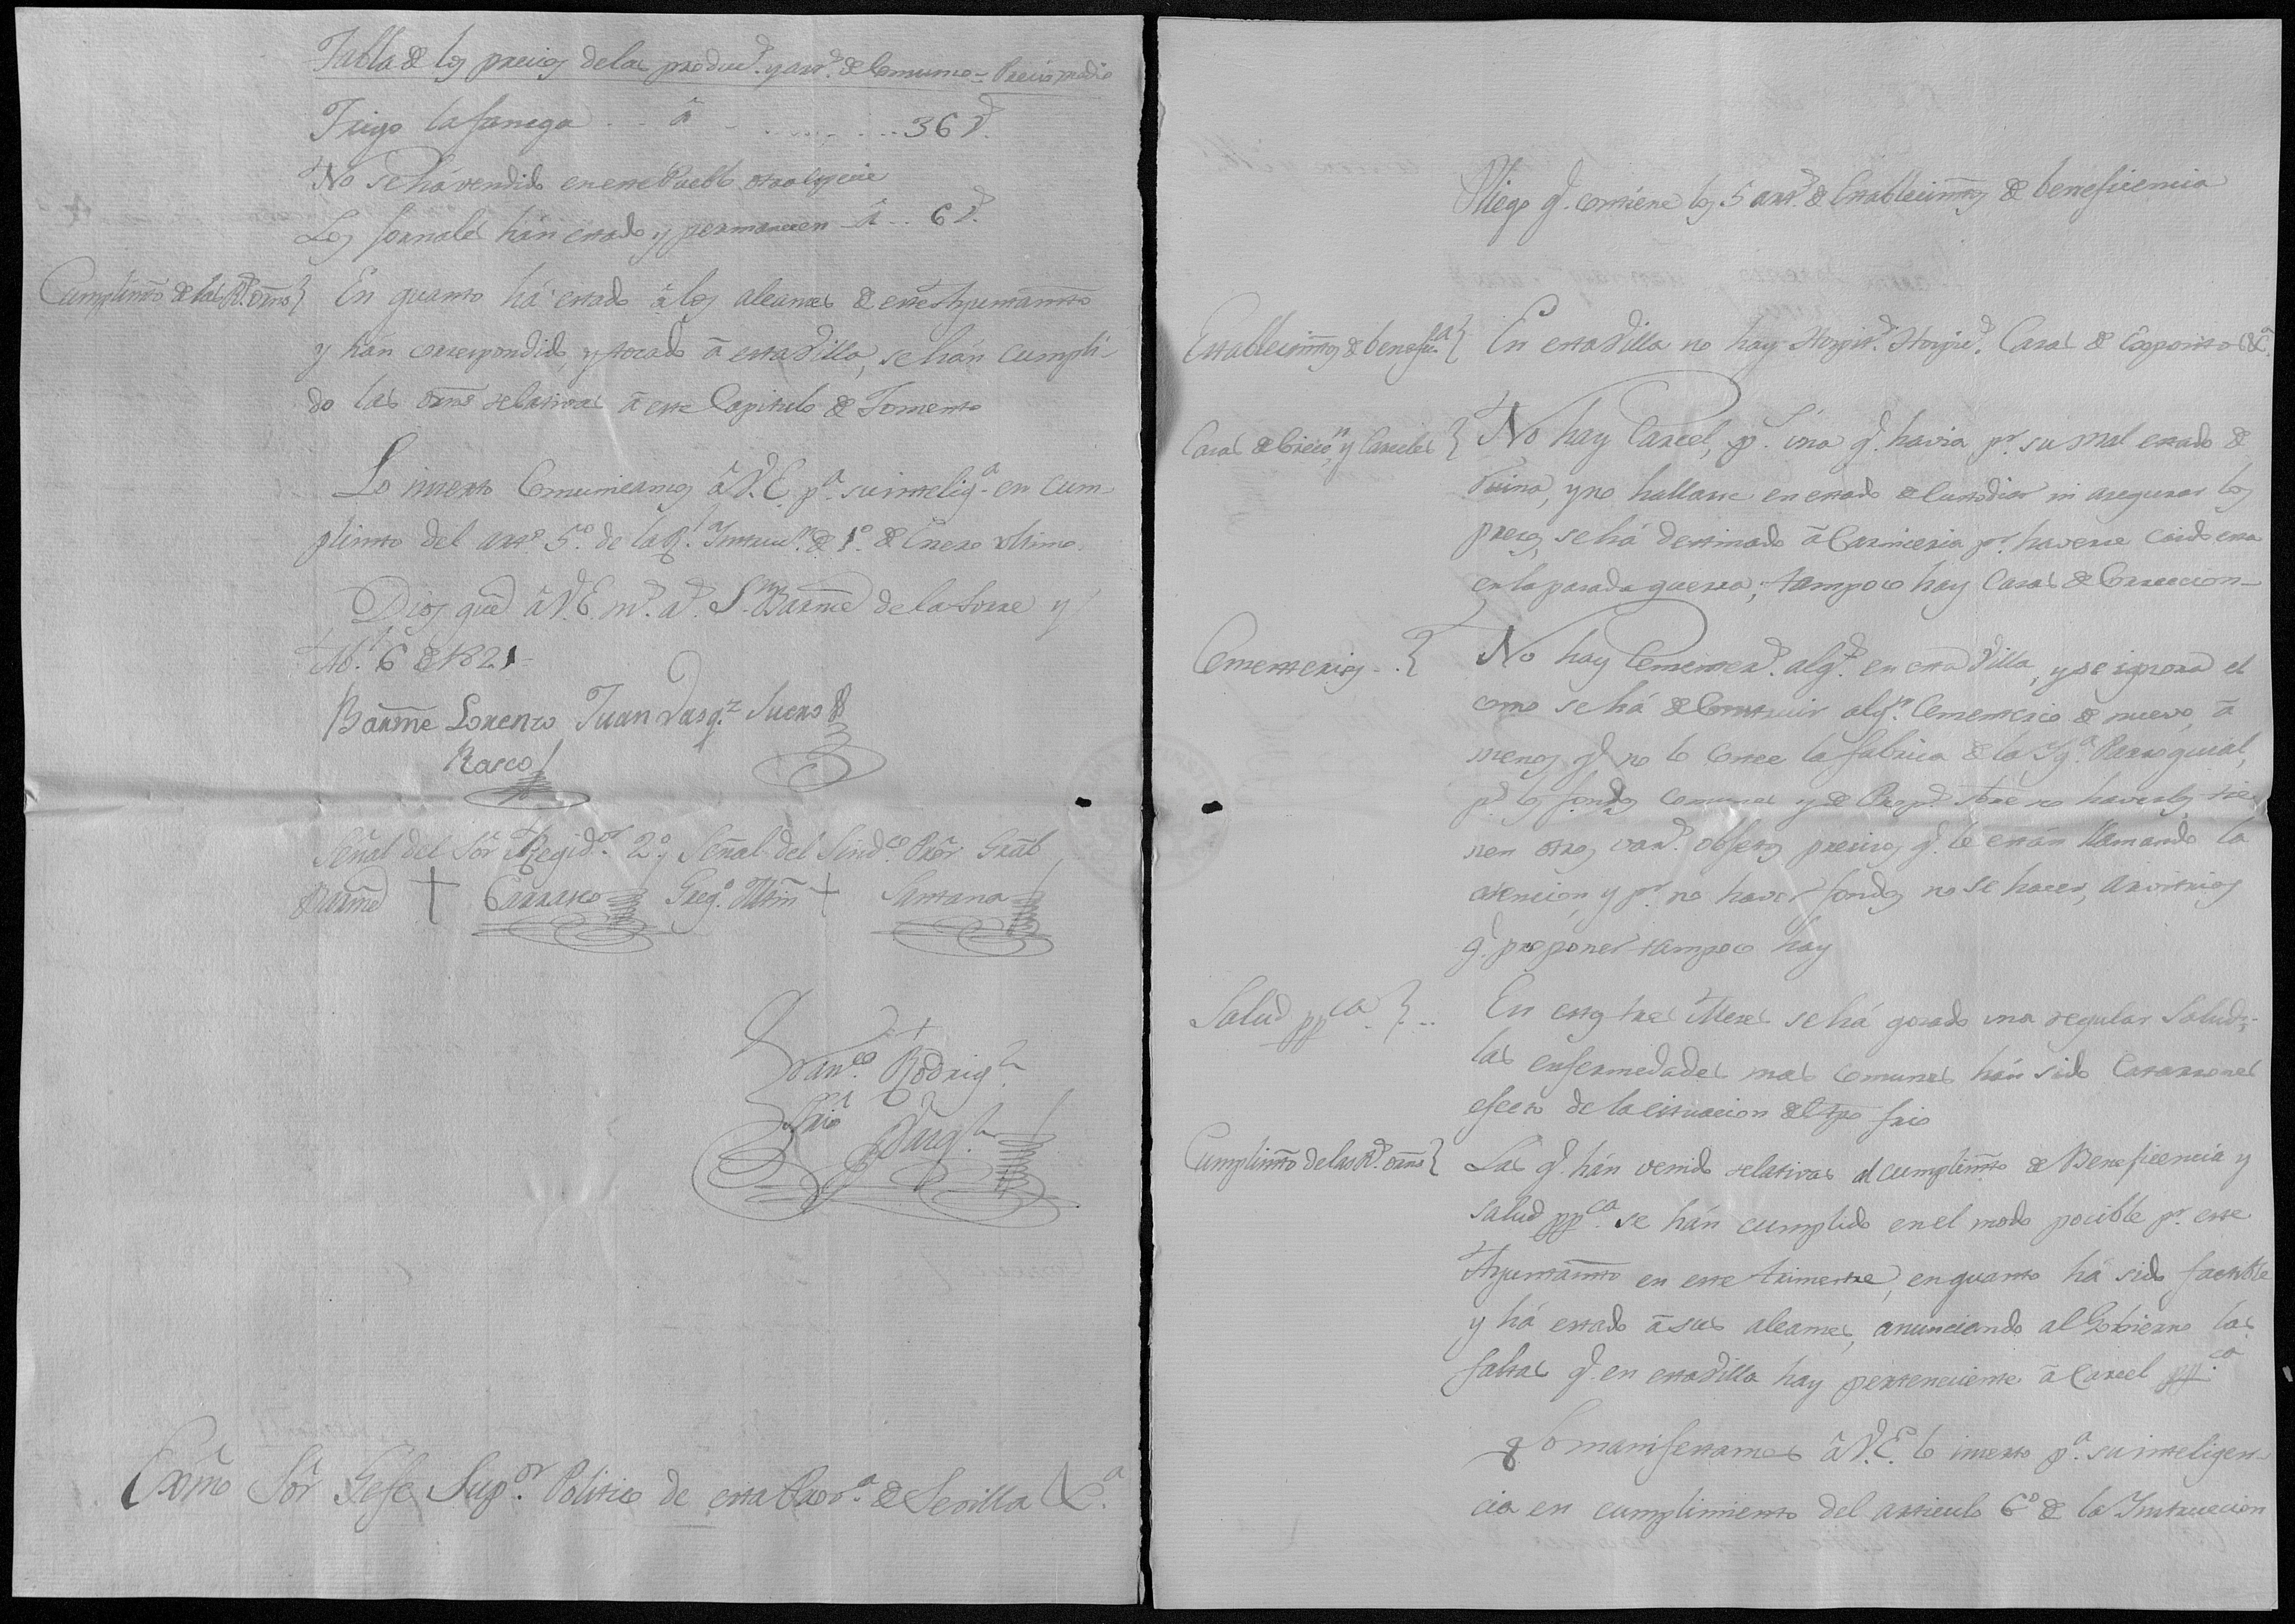 Tabla de los precios delas produc.s y art.s de Comsumo = Precio medio
Trigo la fanega . . â . . . . . . 36 r.s
No se há vendido en este Pueblo otra especie
Los Jornales hán estado y permanecen â . . 6 r.s
Cumplimto de las R.s orns } En quanto há estado â los alcanses de este Ayuntamto
y hán correspondido, y tocado â esta Villa, se hán cumpli-
do las orns relativas â este Capitulo de Fomento
Lo inserto Comunicamos â V.E. p.a su intelig.a en cum-
plimto del art.o 5.o de la R.l Instruc.n de 1.o de Enero ultimo.
Dios gue â V.E. m.s a.s S.n Barme de la Torre y
Ab.l 6 de 1821 =
Barme Lorenzo Juan Vasq.z Suero
Rasco
Señal del Sôr Regid.or 2.o y Señal del Sind.co Prôr Gral
Barme + Carrasco Greg.o Mrin + Santana
Fran.co Rodrig.z
Srio
Exmo Sôr Gefe Sup.or Politico de esta Prov.a de Sevilla &.a
Pliego q.e contiene los 5 art.s de Establecimtos de beneficencia
Establecimtos de benefic.a } En esta Villa no hay Hospit.s Hospic.s Casas de Espositos &.a
Casas de Correcc.n y Carceles } No hay Carcel, p.s una q.e havia p.r su mal estado de
Ruina, y no hallarse en estado de Custodiar ni asegurar los
presos, se há destinado â Carniceria p.r haverse caido esta
en la pasada guerra; tampoco hay Casas de Correccion
Cementerios . . { No hay Cementer.o alg.o en esta Villa, y se ignora el
como se há de Construir alg.n Cementerio de nuevo, â
menos q.e no lo Costee la fabrica de la Ig.a Parroquial,
p.s los fondos comunes y de Prop.s sobre no haverlos tie-
nen otros var.s obgetos precisos q.e le están llamando la
atencion, y p.r no haver fondos no se hacen, Arvitrios
q.e proponer tampoco hay
Salud pp.ca } . . En estos tres Meses se há gozado una regular Salud;
las enfermedades mas comunes hán sido Catarrones
efecto de la situacion del tpo frio
Cumplimto de las R.s orns { Las q.e hán venido relativas al cumplimto de Beneficencia y
salud pp.ca se hán cumplido en el modo pocible p.r este
Ayuntamto en este trimestre, en quanto há sido factible
y há estado â sus alcanses, anunciando al Gobierno las
faltas q.e en esta Villa hay perteneciente â Carcel pp.ca
Lo manifestamos â V.E. lo inserto p.a su inteligen-
cia en cumplimiento del articulo 6.o de la Instruccion